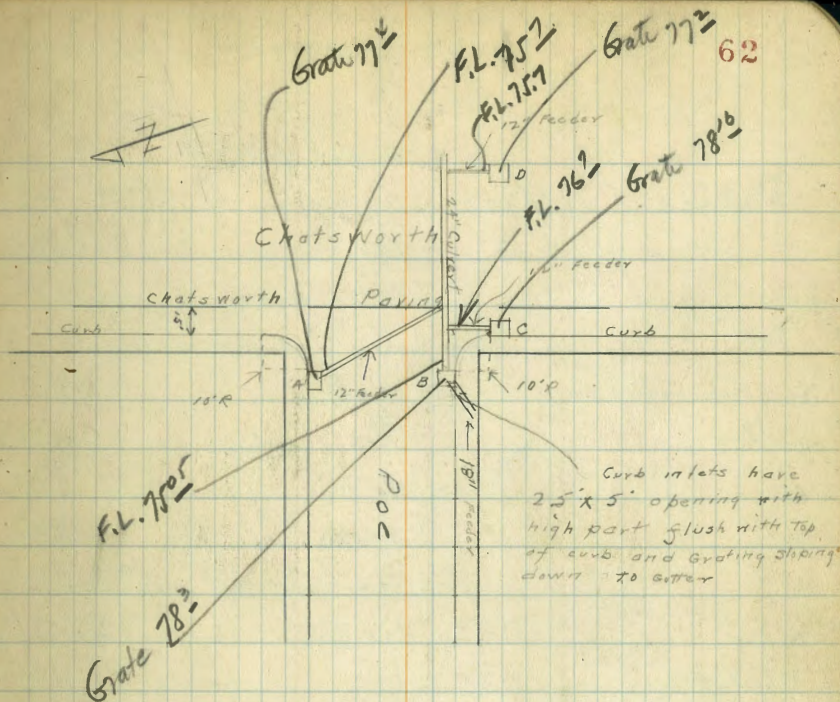 62
Grate 77⁴
F.L. 75⁷
Grate 77²
F.L. 75.7
12" Feeder
D
Grate 78¹⁰
F.L. 76⁷
N
Chatsworth
24" Culvert
Feeder
Chatsworth Paving
Curb
C
Curb
A
B
10'R
12" Feeder
10'R
18" Feeder
F.L. 75⁰⁵
Curb inlets have
2.5' x 5' opening with
high part flush with Top
of curb and Grating sloping
down to Gutter
Grate 78³